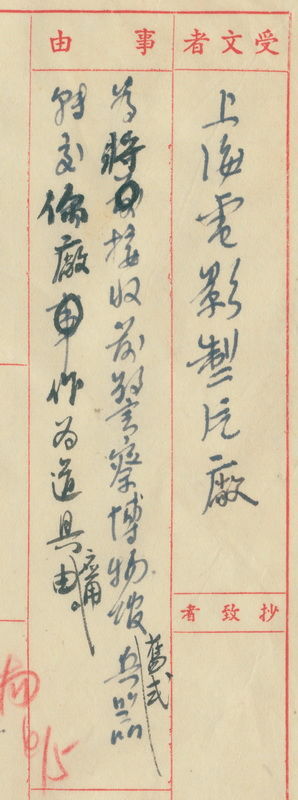 受文者
上海電影製片廠
抄致者
事由
為將接收前警察博物館舊式兵器
交你廠作為道具用由